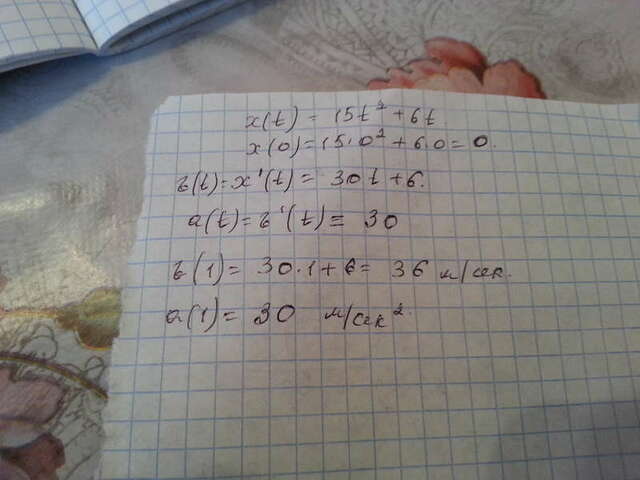 x(t) = 15t² + 6t
x(0) = 15·0² + 6·0 = 0.
v(t) = x'(t) = 30t + 6.
a(t) = v'(t) = 30
v(1) = 30·1 + 6 = 36 м/сек.
a(1) = 30 м/сек².